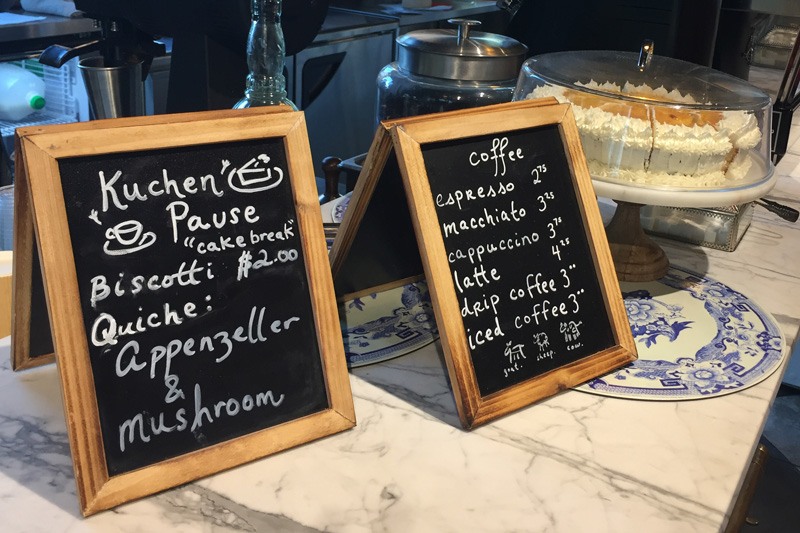 "Kuchen"
Pause
"cake break"
Biscotti $2.00
Quiche:
Appenzeller
&
Mushroom
coffee
espresso 2.75
macchiato 3.25
cappuccino 3.75
latte 4.25
drip coffee 3.00
iced coffee 3.00
goat. sheep. cow.